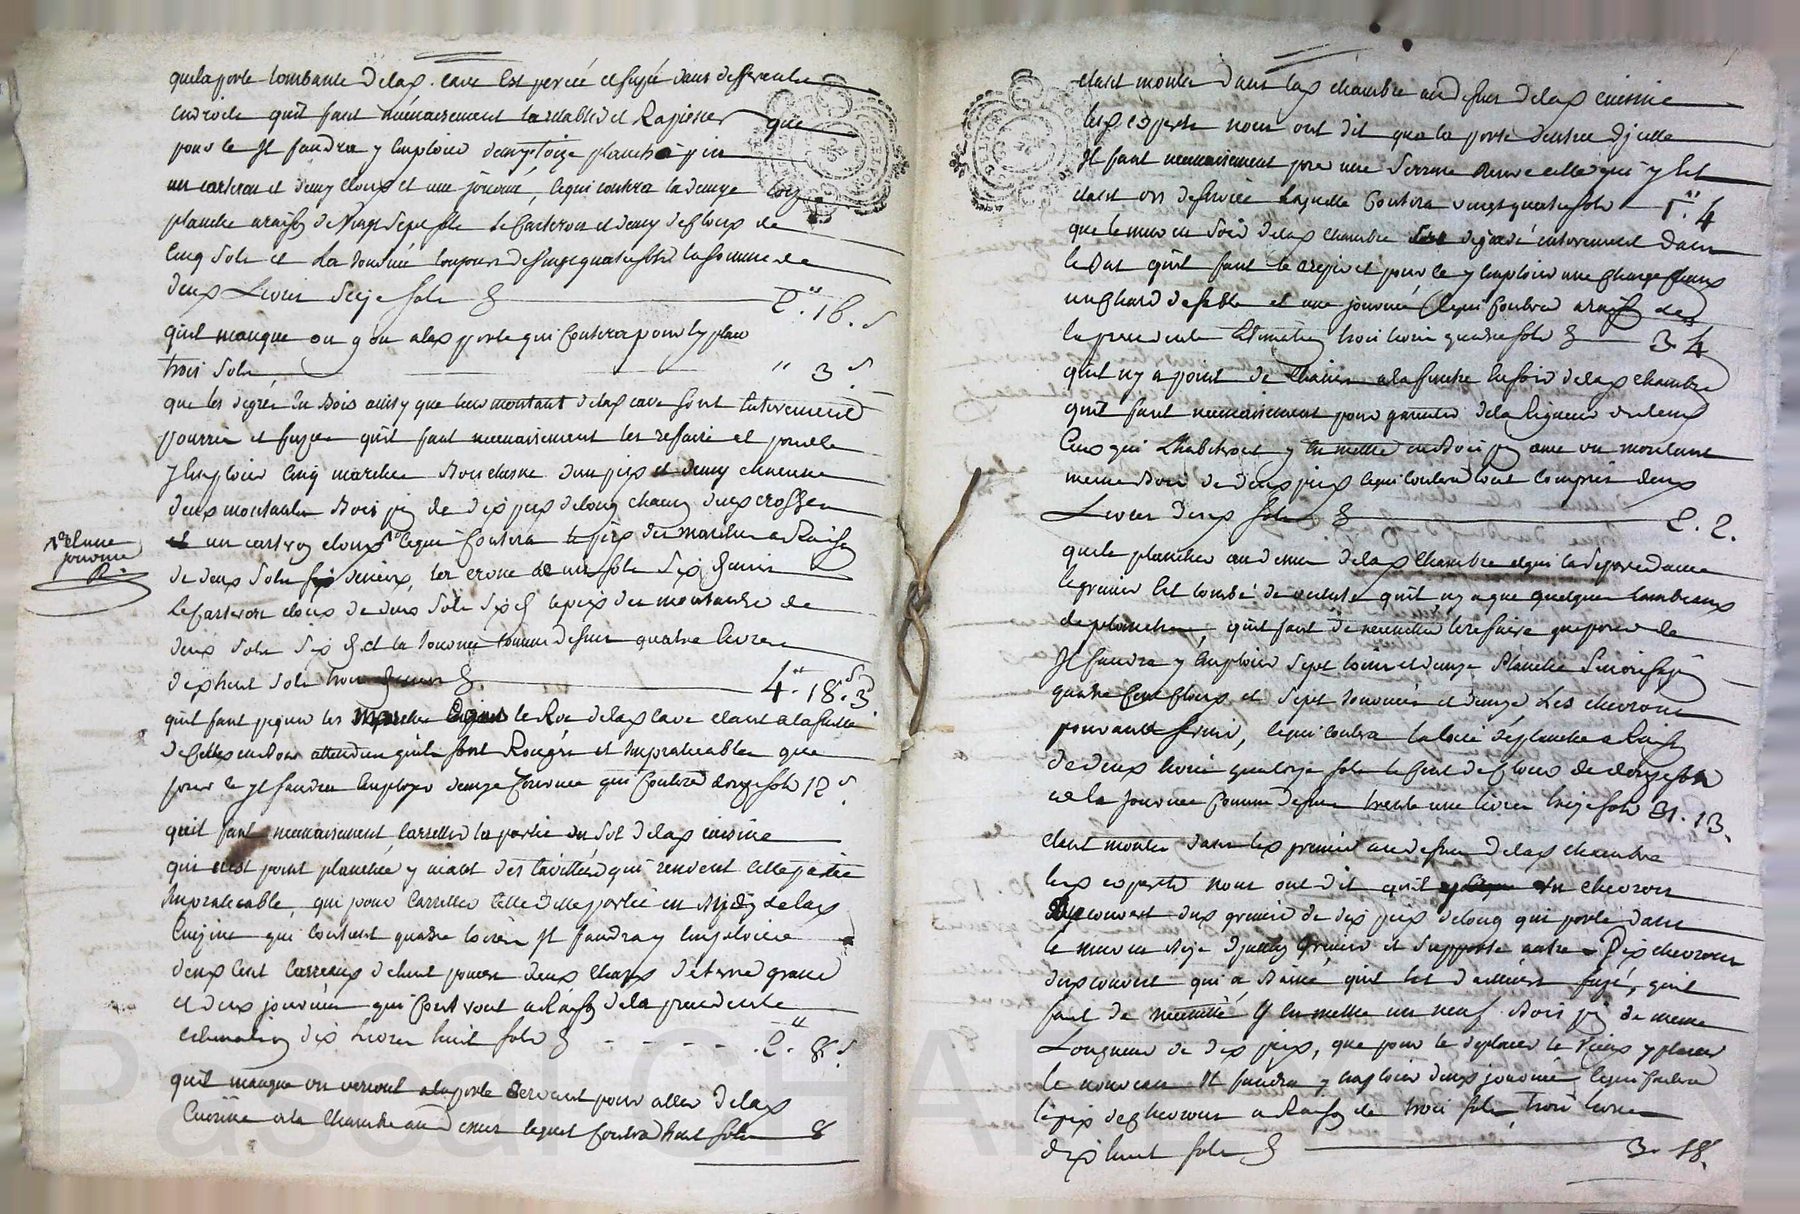 que la porte tombante de lad. cave est percée et fusée dans differents
endroits qu'il faut necessairement la retablir et Rapiecer que
pour ce Il faudra y Employer demy toize planche pin
un carteron et demy cloux et une journée, lequi coutera la demye toize
planche a raison de vingt sept sols le Carteron et demy de cloux de
Cinq sols et la journée toujours de vingt quatre sols la somme de
deux Livres seize sols 2.16.s
qu'il manque un gon a lad porte qui Coutera pour le placer
trois sols 3 s
que les degrés En Bois ainsy que leur montant de lad cave sont Entierement
pourris et fuzés qu'il faut necessairement les refaire et pour ce
y Employer Cinq marches Bois chesne d'un pied et demy chacune
deux montants Bois pin de dix pieds de long chacun deux crosses
et un cartron cloux lequi Coutera le pied des marches a Raison
de deux sols six deniers, les crosses de un sols six deniers
Le Carteron cloux de deux sols six d. le pied des montants de
deux sols six d. et la journée comme dessus quatre livres
dix huit sols trois deniers 4.18.s 3
+ et une
journée
qu'il faut piquer les marches dans le Roc de lad cave etant a la suitte
de celles en Bois attendu qu'ils sont Rongés et Impraticable que
pour ce Il faudra Employer demye Journée qui Coutera douze sols 12 s.
qu'il faut necessairement Carreller la partie du sol de lad cuisine
qui n'est point planchée y aiant des qui rendent cette partie
Impraticable, qui pour Carreller cette ditte partie en de lad
Cuizine qui contient quatre toizes Il faudra y Employer
deux Cent Carreaux de huit pouces deux chars de terre grasse
et deux journées qui Coutront a Raison de la precedente
estimation dix Livres huit sols 8 s.
qu'il manque un verrouil a la porte servant pour aller de lad
Cuisine a la Chambre au dessus lequel Coutera huit sols 8
etant montés dans lad chambre au dessus de lad cuisine
lesd experts nous ont dit que la porte dentrée d'icelle
Il faut necessairement pour une serrure neuve celle qui y est
etant hors de service Laquelle Coutera vingt quatre sols 1. 4
que le mur en soir de lad chambre est degradé entierement dans
le Bas qu'il faut le crepir et pour ce y Employer une charge chaux
un Chard de sable et une journée Cequi Coutera a raison de
la precedente Estimation trois livres quatre sols 3. 4
qu'il n'y a point de chassis a la fenetre En soir de lad chambre
qu'il faut necessairement pour garantir de la Rigueur du tems
Ceux qui L'habiteront y En mettre en Bois pin avec un montant
meme Bois de deux pieds lequi Coutera tout compris deux
Livres deux sols 2. 2.
que le plancher au dessus de lad Chambre et qui la separe d'avec
le grenier Est tombé de vetusté qu'il, n'y a que quelques lambeaux
de planches, qu'il faut de necessité le refaire que pour ce
Il faudra y Employer sept toizes et demye Planche
quatre Cent Cloux et sept journées et demye Les chevrons
pouvant servir, lequi coutera la toize de planche a Raison
de deux livres quatorze sols le Cent de Cloux de douze sols
et la journée Comme dessus trente une livres treize sols 31. 13.
etant montés dans led grenier au dessus de lad chambre
lesd experts nous ont dit qu'il un chevron
du couvert dud grenier de dix pieds de long qui porte dans
le mur en bize d'icelluy Grenier et supporte autre Six chevrons
dud couvert qui a Baissé qu'il est d'ailleurs fuzé, qu'il
faut de necessité y En mettre un neuf Bois pin de meme
Longueur de dix pieds, que pour le deplacer le vieux y placer
le nouveau Il faudra y Employer deux journées lequi Coutera
le pied de chevron a Raison de trois sols trois livres
dix huit sols 3. 18.
Pascal CHAMBON